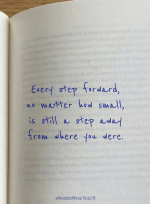 Every step forward,
no matter how small,
is still a step away
from where you were.